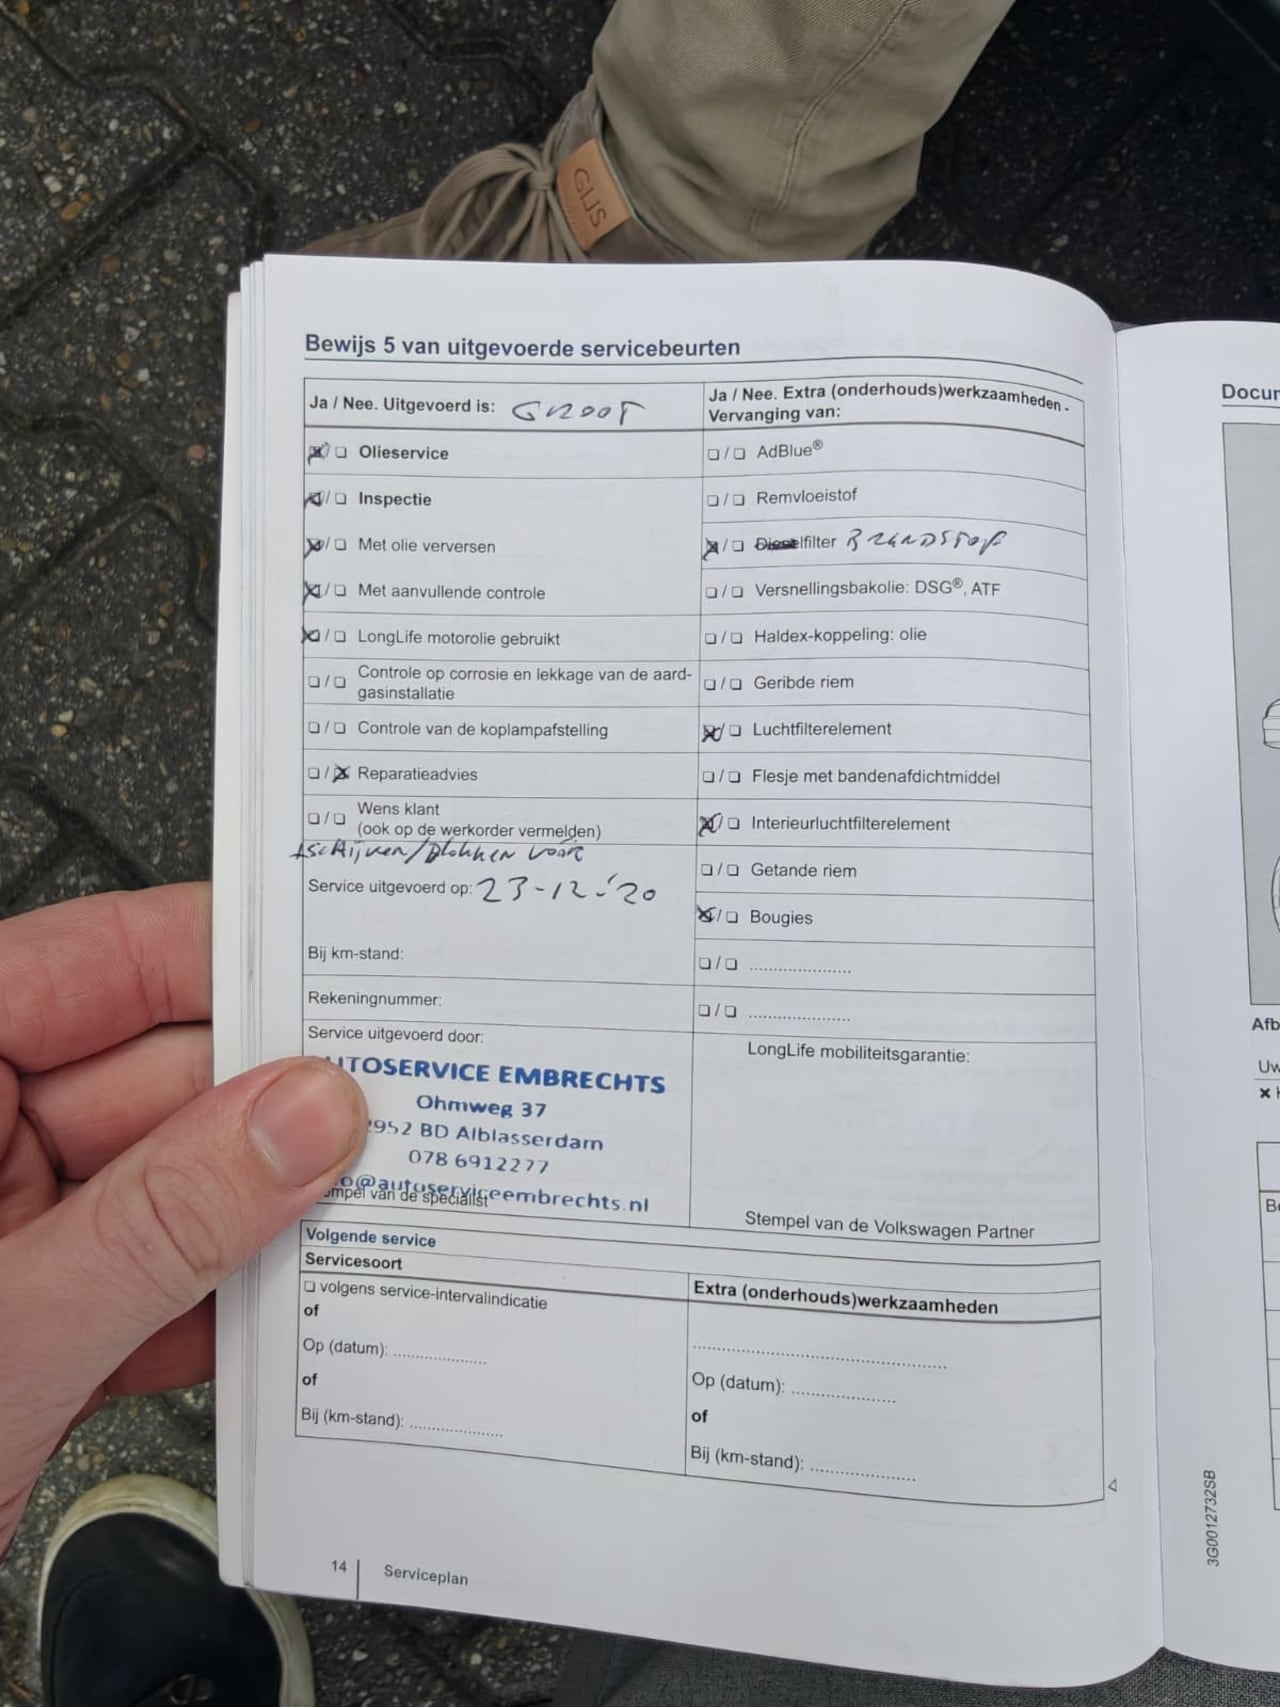 GIJS
Bewijs 5 van uitgevoerde servicebeurten
Ja / Nee. Uitgevoerd is: GROOT
☒/☐ Olieservice
☒/☐ Inspectie
☒/☐ Met olie verversen
☒/☐ Met aanvullende controle
☒/☐ LongLife motorolie gebruikt
☐/☐ Controle op corrosie en lekkage van de aard-
gasinstallatie
☐/☐ Controle van de koplampafstelling
☐/☒ Reparatieadvies
☐/☐ Wens klant
(ook op de werkorder vermelden)
+schijven/blokken voor
Service uitgevoerd op: 23-12-'20
Bij km-stand:
Rekeningnummer:
Service uitgevoerd door:
UTOSERVICE EMBRECHTS
Ohmweg 37
2952 BD Alblasserdam
078 6912277
o@autoserviceembrechts.nl
empel van de specialist
Ja / Nee. Extra (onderhouds)werkzaamheden -
Vervanging van:
☐/☐ AdBlue®
☐/☐ Remvloeistof
☒/☐ Dieselfilter BRANDSTOF
☐/☐ Versnellingsbakolie: DSG®, ATF
☐/☐ Haldex-koppeling: olie
☐/☐ Geribde riem
☒/☐ Luchtfilterelement
☐/☐ Flesje met bandenafdichtmiddel
☒/☐ Interieurluchtfilterelement
☐/☐ Getande riem
☒/☐ Bougies
☐/☐ .....................
☐/☐ .....................
LongLife mobiliteitsgarantie:
Stempel van de Volkswagen Partner
Volgende service
Servicesoort
☐ volgens service-intervalindicatie
of
Op (datum): ...................
of
Bij (km-stand): ...................
Extra (onderhouds)werkzaamheden
....................................................
Op (datum): .....................
of
Bij (km-stand): .....................
14 | Serviceplan
Docum
Afb
Uw
3G0012732SB